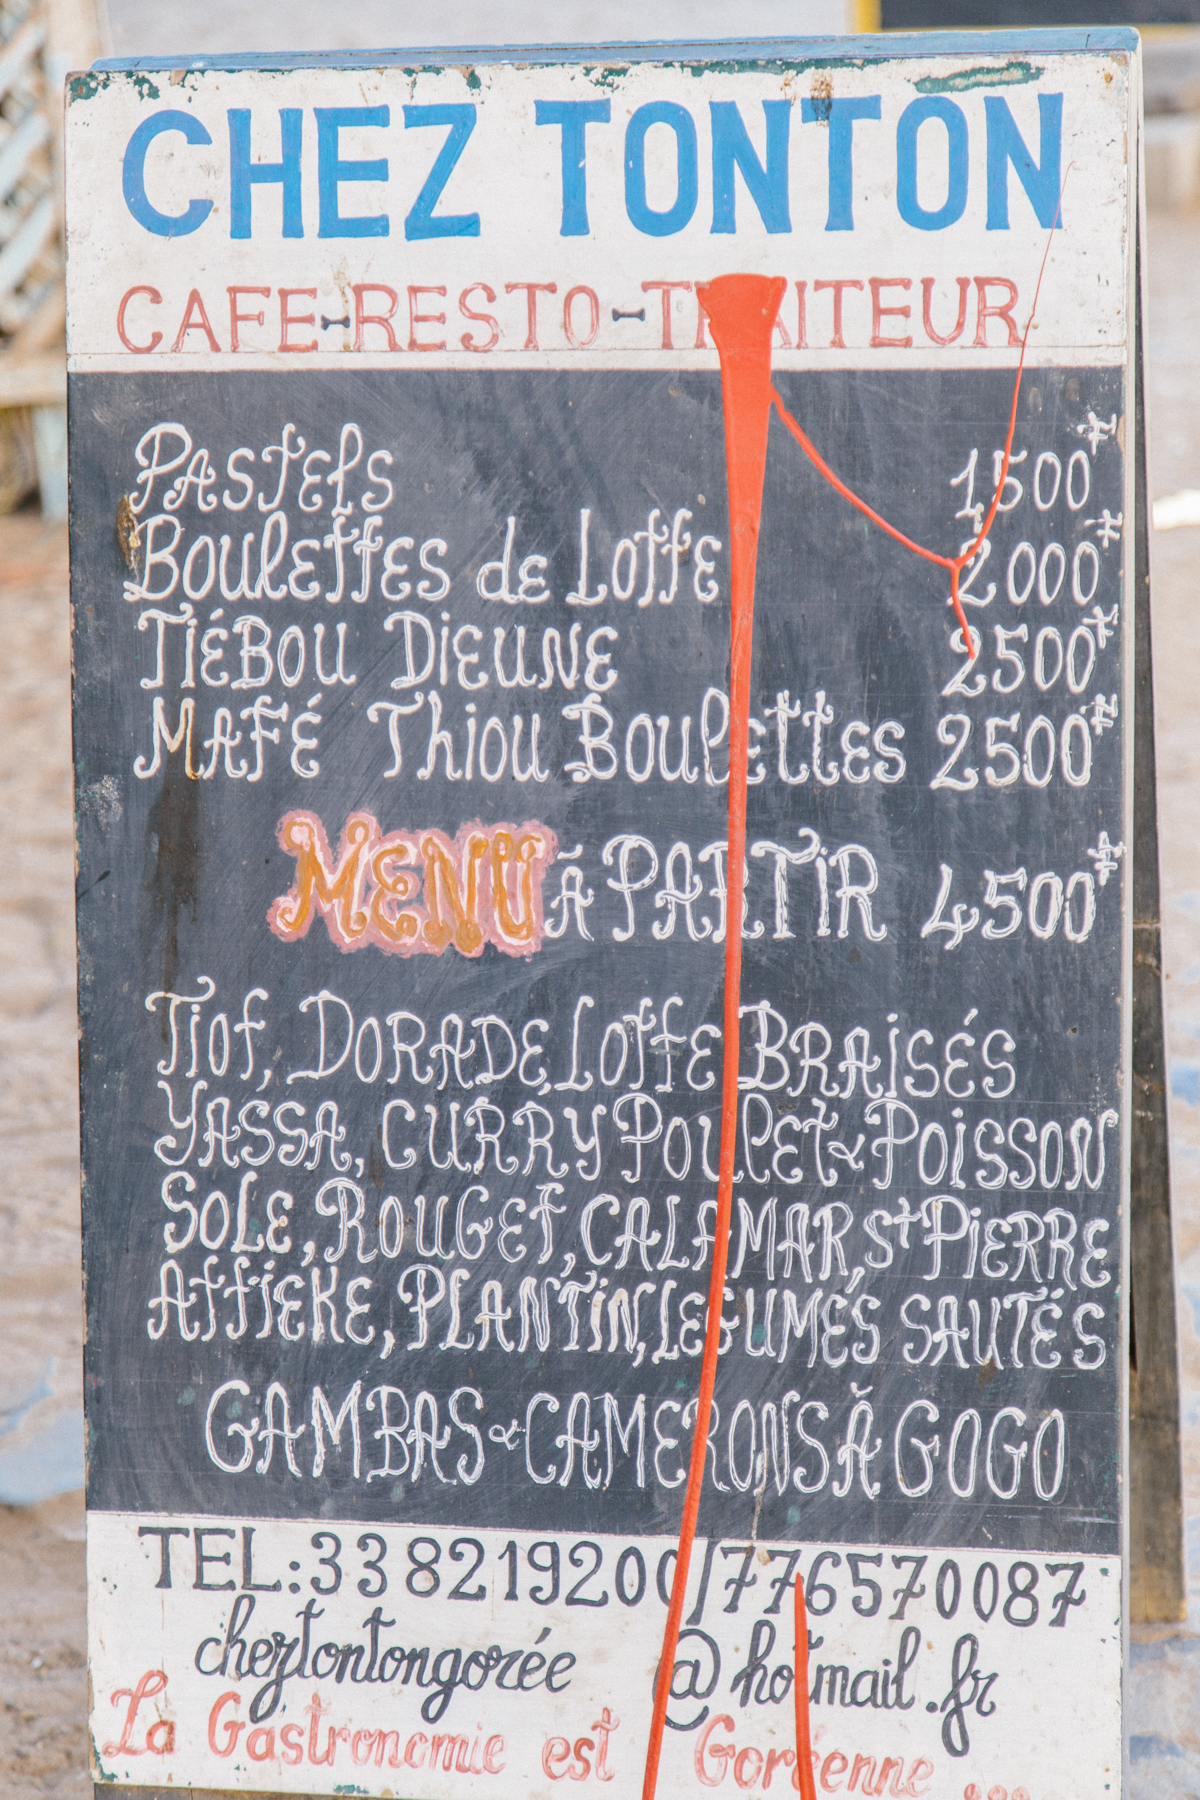 CHEZ TONTON
CAFE-RESTO-TRAITEUR
PASTELS 1500
BOULETTES de LOTTE 2000
TIÉBOU DIEUNE 2500
MAFÉ Thiou BOULETTES 2500
MENU à PARTIR 4500
Tiof, DORADE, LOTTE BRAISÉS
YASSA, CURRY POULET & POISSON
SOLE, ROUGET, CALAMAR, St PIERRE
ATTIEKE, PLANTIN, LEGUMES SAUTÉS
GAMBAS & CAMERONS À GOGO
TEL: 338219200/776570087
cheztontongorée @hotmail.fr
La Gastronomie est Goréenne ...